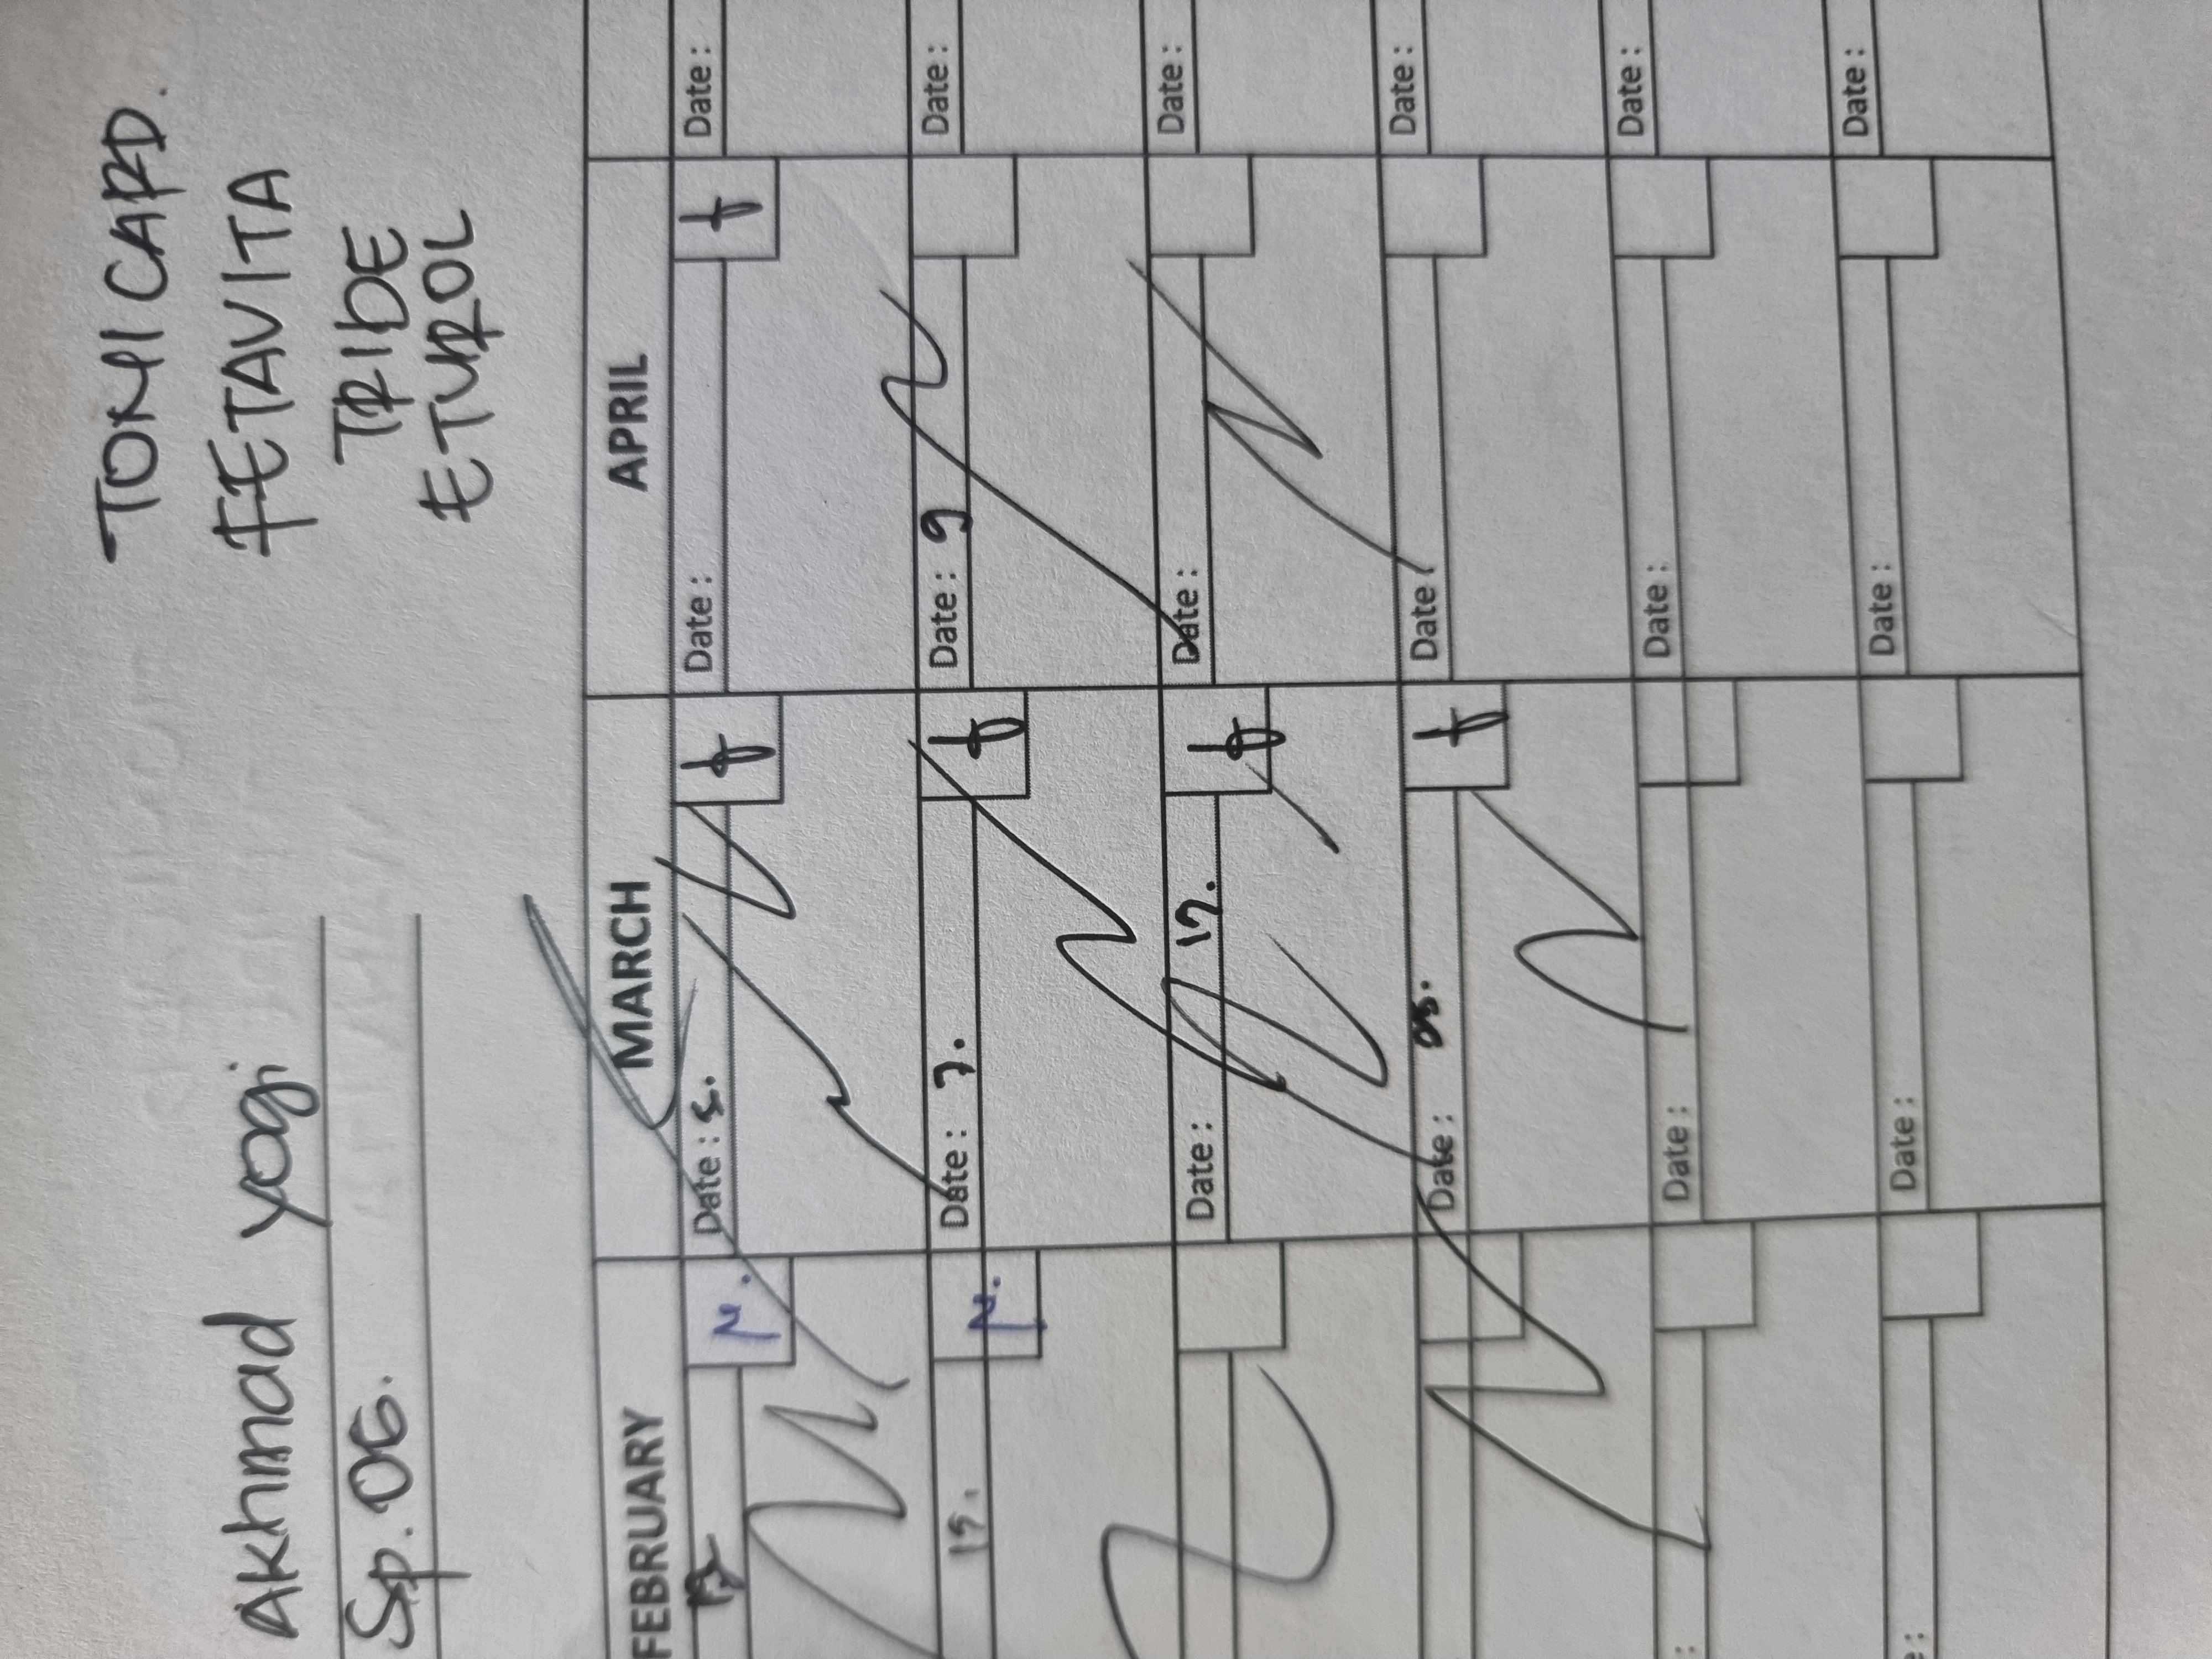 TONICARD.
FETAVITA
TRIDE
ETUROL
Akhmad yogi
Sp. OG.
FEBRUARY MARCH APRIL
Date: 5. Date: Date:
19. Date: 7. Date: 9 Date:
Date: 17. Date: Date:
Date: Date: Date:
: Date: Date: Date:
e: Date: Date: Date: